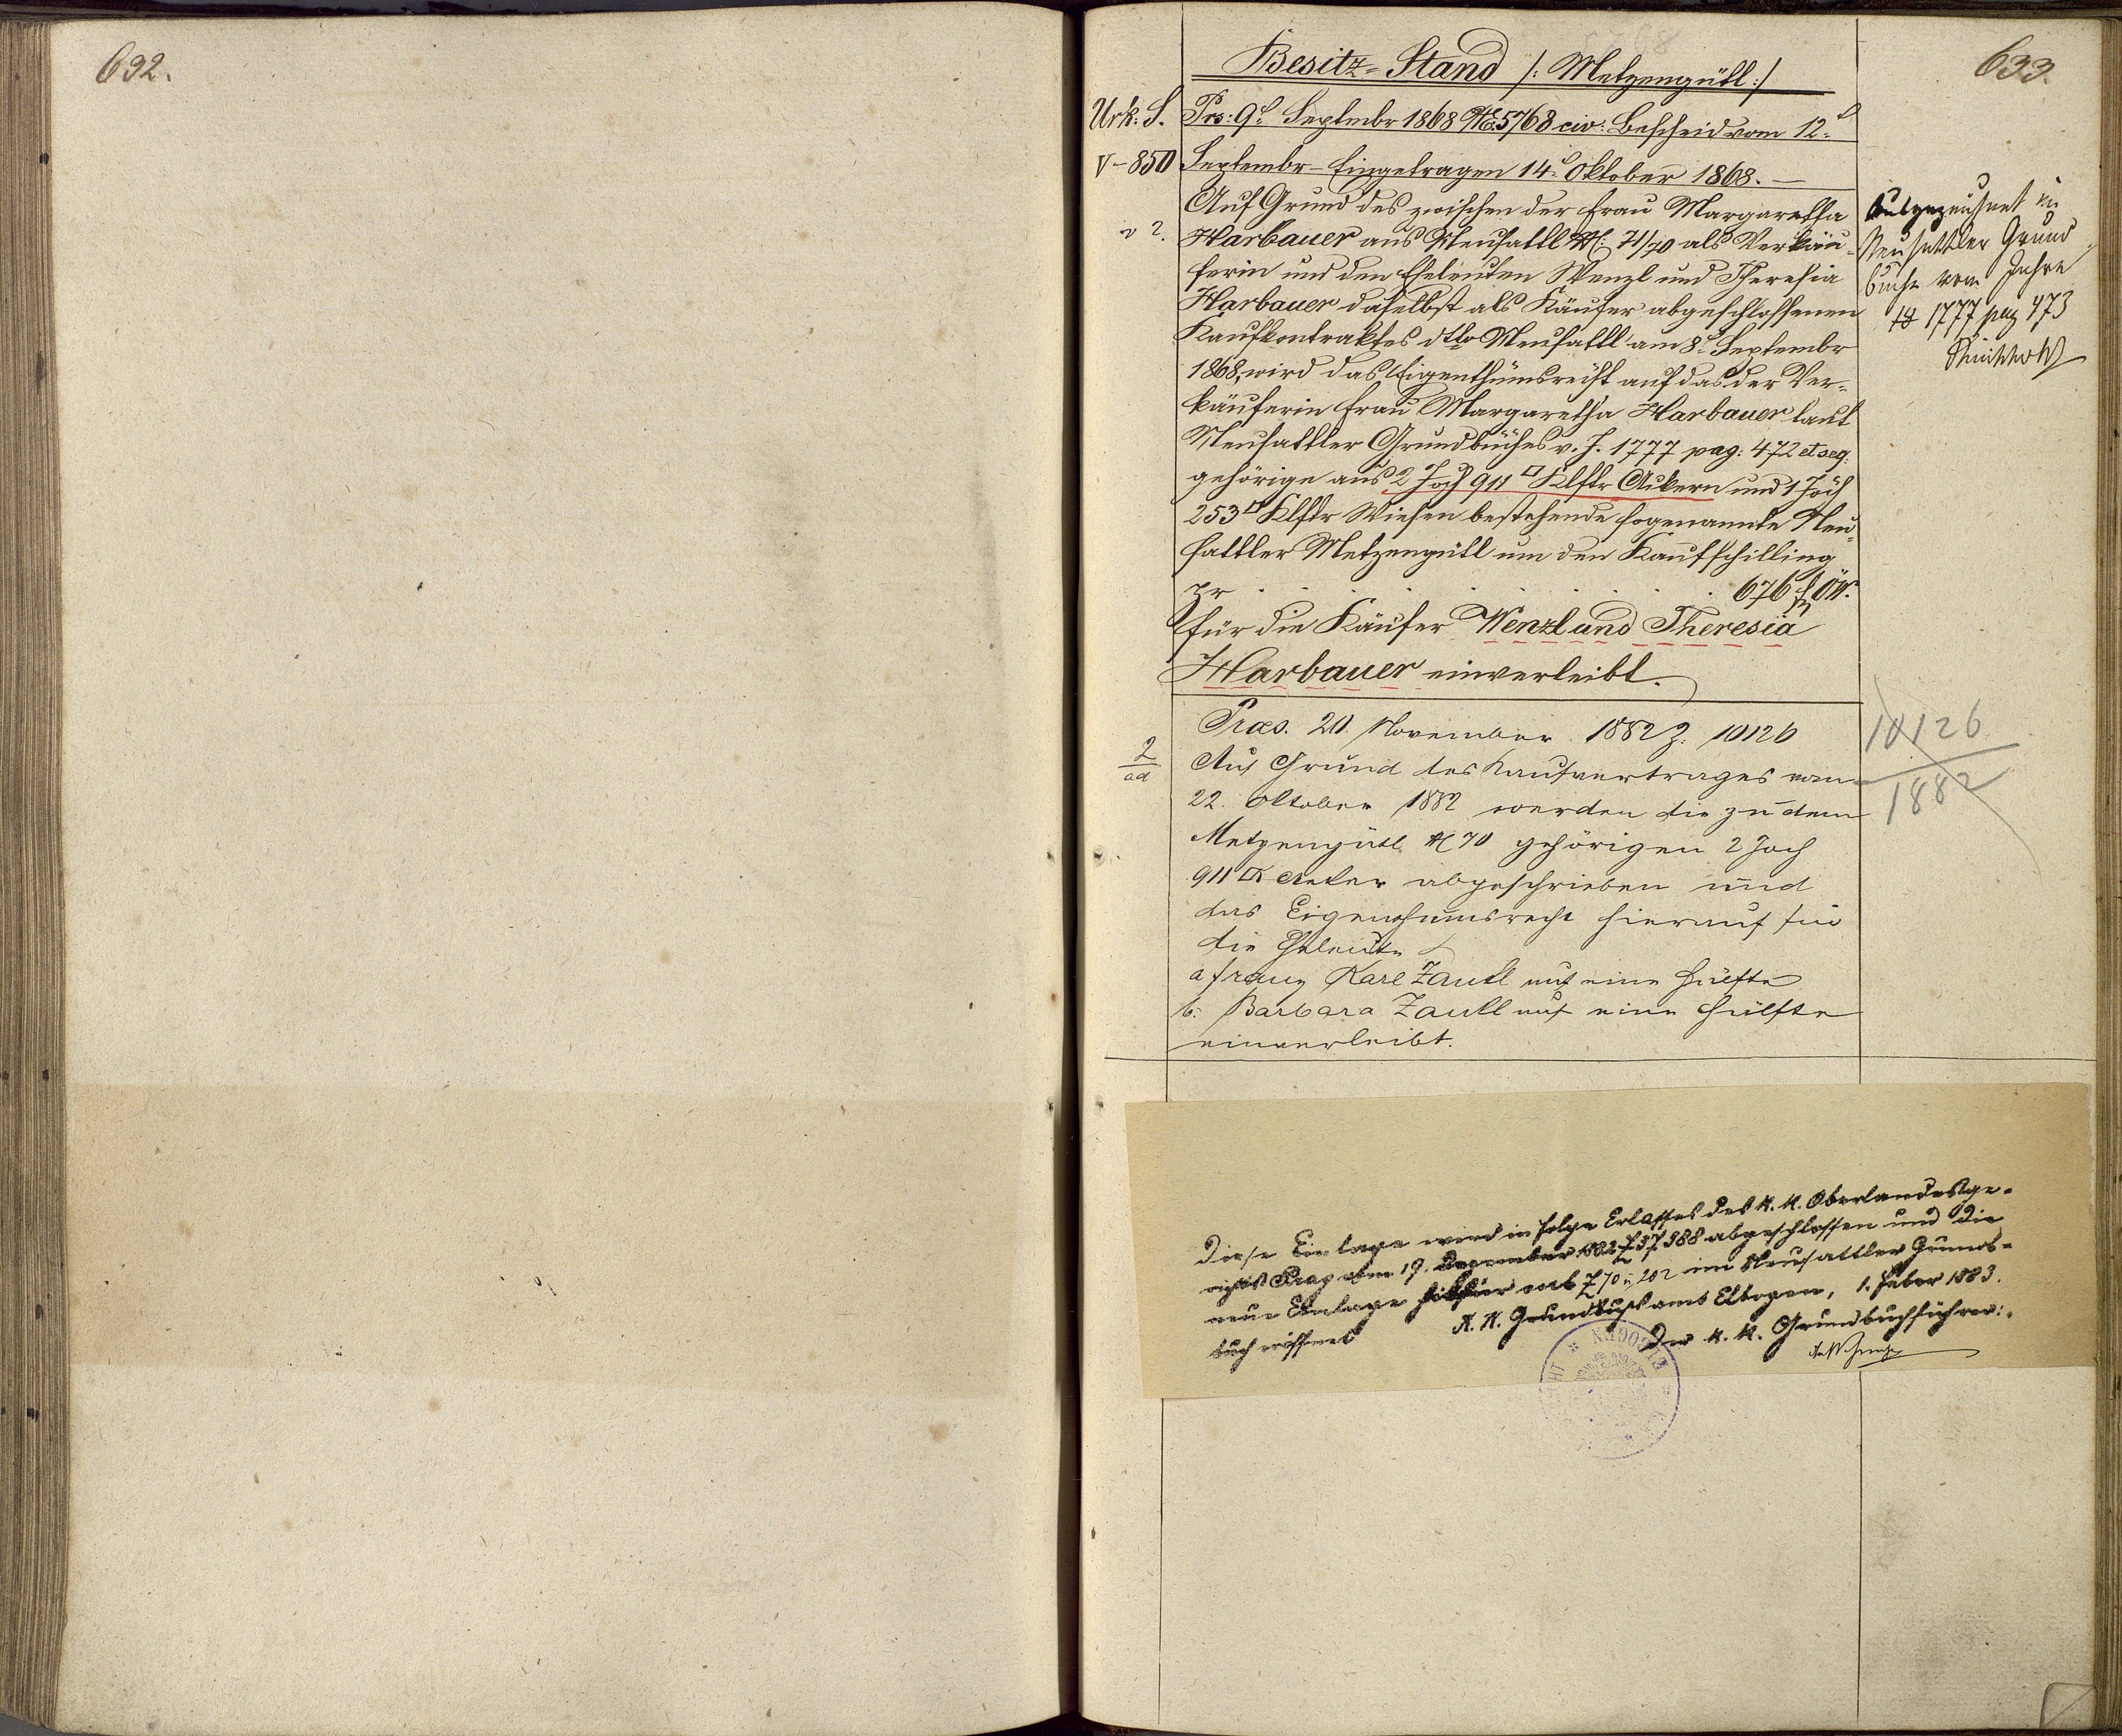 632.
633.
Besitz-Stand /: Metzengütl :/
Urk: S. Prs: 9t. Septmbr 1868 NE 5768 civ: Bescheid vom 12t.
V-850 Septembr - Eingetragen 14t. Oktober 1868. —
Auf Grund des zwischen der Frau Margaretha
Harbauer aus Neusattl N: 71/70 als Verkäu-
ferin und den Eheleuten Wenzl und Theresia
Harbauer daselbst als Käufer abgeschlossenen
Kaufkontraktes dtto Neusattl am 8t. Septembr
1868, wird das Eigenthumsrecht auf das der Ver-
käuferin Frau Margaretha Harbauer laut
Neusattler Grundbuches v. J. 1777 pag: 472 et seq.
gehörige aus 2 Joch 911 □ Klftr Äckern und 1 Joch
253 □ Klftr Wiesen bestehende sogenannte Neu-
sattler Metzengütl um den Kaufschilling
pr . . . . . . . . 676 f ÖW.
für die Käufer Wenzl und Theresia
Harbauer einverleibt.
Ausgezeichnet im
Neusattler Grund
buche vom Jahre
18 1777 pag 473
2/ad
Praes. 20. November 1882 Z: 10126
Auf Grund des Kaufvertrages vom
22. Oktober 1882 werden die zu dem
Metzengütl N 70 gehörigen 2 Joch
911 □ Acker abgeschrieben und
das Eigenthumsrecht hierauf für
die Eheleute
a Franz Karl Zautl auf eine Hälfte
b: Barbara Zautl auf eine Hälfte
einverleibt.
10126
1882
Diese Einlage wird in Folge Erlasses des k. k. Oberlandesge-
richts Prag vom 19. Dezember 1882 Z 37388 abgeschlossen und die
neue Einlage hiefür sub Z 70 u 202 im Neusattler Grund-
buch eröffnet
K. K. Grundbuchsamt Elbogen, 1. Feber 1883.
Der k. k. Grundbuchführer:
ELBOGEN